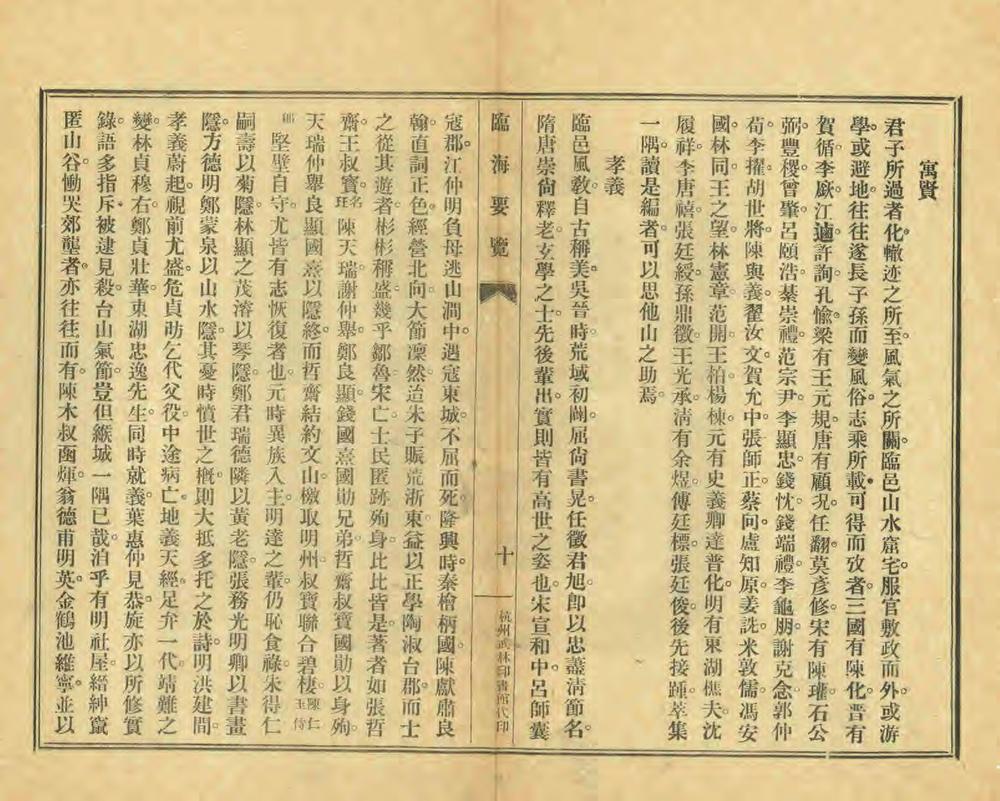 寓賢
君子所過者化轍迹之所至風氣之所關臨邑山水窟宅服官敷政而外或游
學或避地往往遂長子孫而變風俗志乘所載可得而攷者三國有陳化晉有
賀循李廞江逌許詢孔愉梁有王元規唐有顧況任翻莫彥修宋有陳瓘石公
弼豐稷曾肇呂頤浩綦崇禮范宗尹李顯忠錢忱錢端禮李龜朋謝克念郭仲
荀李擢胡世將陳與義翟汝文賀允中張師正蔡向盧知原姜詵米敦儒馮安
國林同王之望林憲章范開王柏楊棟元有史義卿達普化明有東湖樵夫沈
履祥李唐禧張廷綬孫鼎徵王光承淸有余煜傅廷標張廷俊後先接踵萃集
一隅讀是編者可以思他山之助焉
孝義
臨邑風敎自古稱美吳晉時荒域初闢屈尙書晃任徵君旭卽以忠藎淸節名
隋唐崇尙釋老玄學之士先後輩出實則皆有高世之姿也宋宣和中呂師囊
臨海要覽 十 杭州武林印書館代印
寇郡江仲明負母逃山澗中遇寇東城不屈而死隆興時秦檜柄國陳獻肅良
翰直詞正色經營北向大節凜然迨朱子賑荒浙東益以正學陶淑台郡而士
之從其遊者彬彬稱盛幾乎鄒魯宋亡士民匿跡殉身比比皆是著者如張哲
齋王叔寶名珏陳天瑞謝仲舉鄭良顯錢國熹國勛兄弟哲齋叔寶國勛以身殉
天瑞仲舉良顯國熹以隱終而哲齋結約文山檄取明州叔寶聯合碧棲陳仁玉侍
郞堅壁自守尤皆有志恢復者也元時異族入主明達之輩仍恥食祿朱得仁
嗣壽以菊隱林顯之茂濬以琴隱鄭君瑞德隣以黃老隱張務光明卿以書畫
隱方德明鄭蒙泉以山水隱其憂時憤世之槪則大抵多托之於詩明洪建間
孝義蔚起視前尤盛危貞昉乞代父役中途病亡地義天經足弁一代靖難之
變林貞穆右鄭貞壯華東湖忠逸先生同時就義葉惠仲見恭旋亦以所修實
錄語多指斥被逮見殺台山氣節豈但緱城一隅已哉洎乎有明社屋縉紳竄
匿山谷慟哭郊壟者亦往往而有陳木叔函煇翁德甫明英金鶴池維寧並以